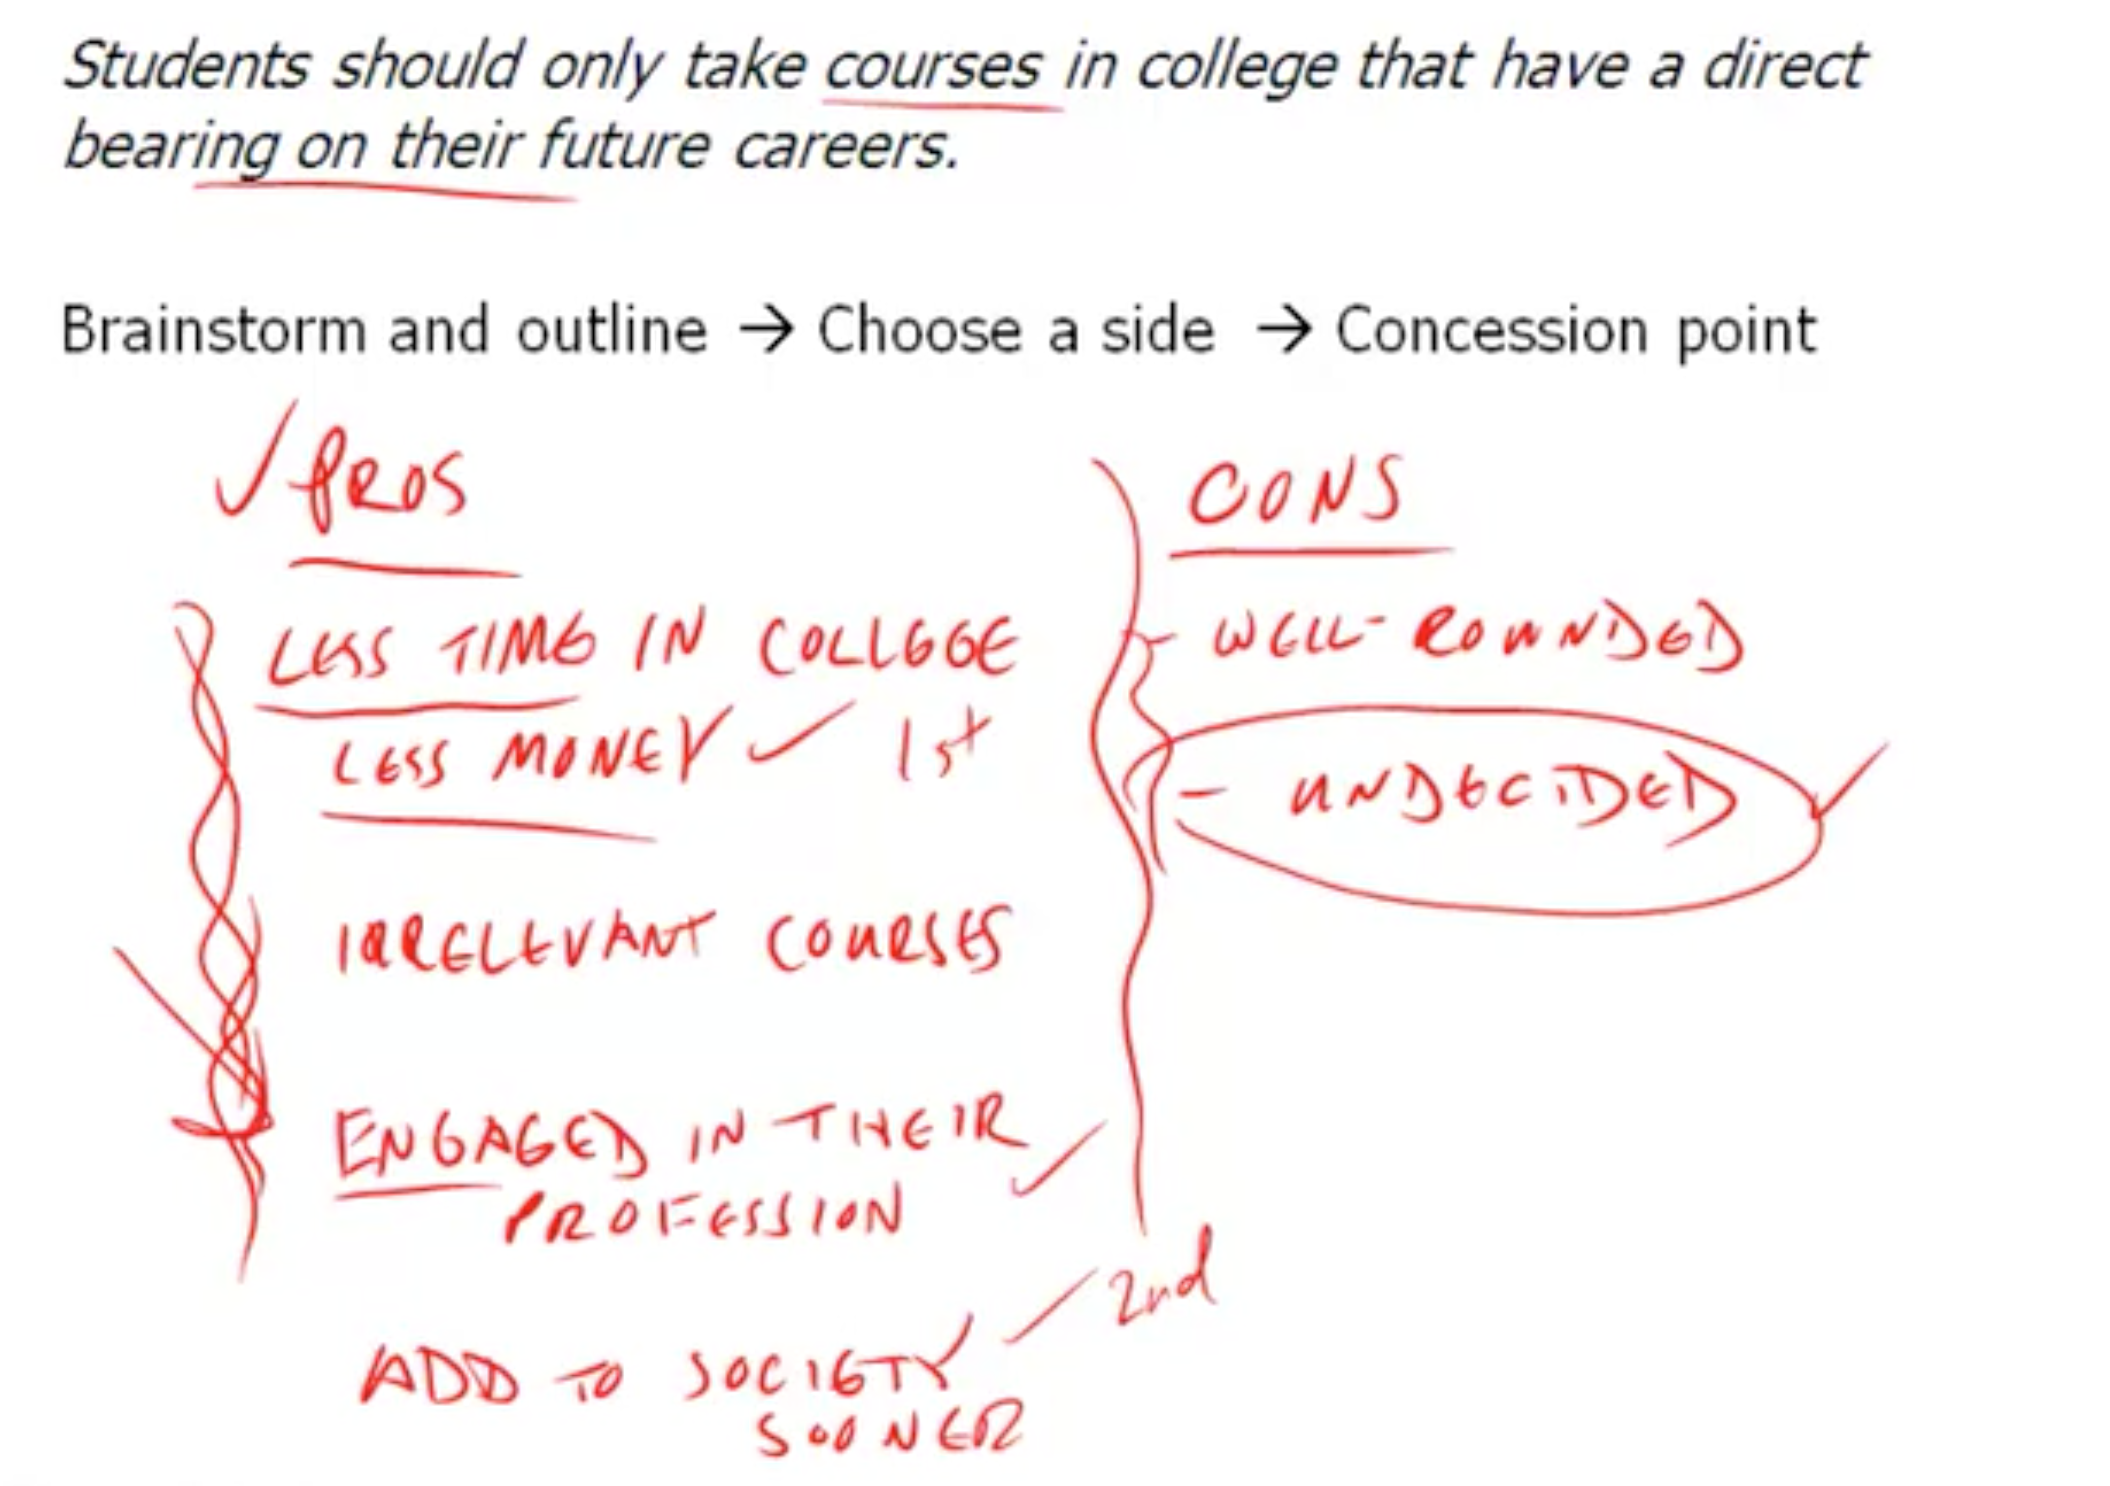 Students should only take courses in college that have a direct
bearing on their future careers.
Brainstorm and outline → Choose a side → Concession point
PROS
LESS TIME IN COLLEGE
LESS MONEY 1st
IRRELEVANT COURSES
ENGAGED IN THEIR
PROFESSION
ADD TO SOCIETY 2nd
SOONER
CONS
- WELL-ROUNDED
- UNDECIDED